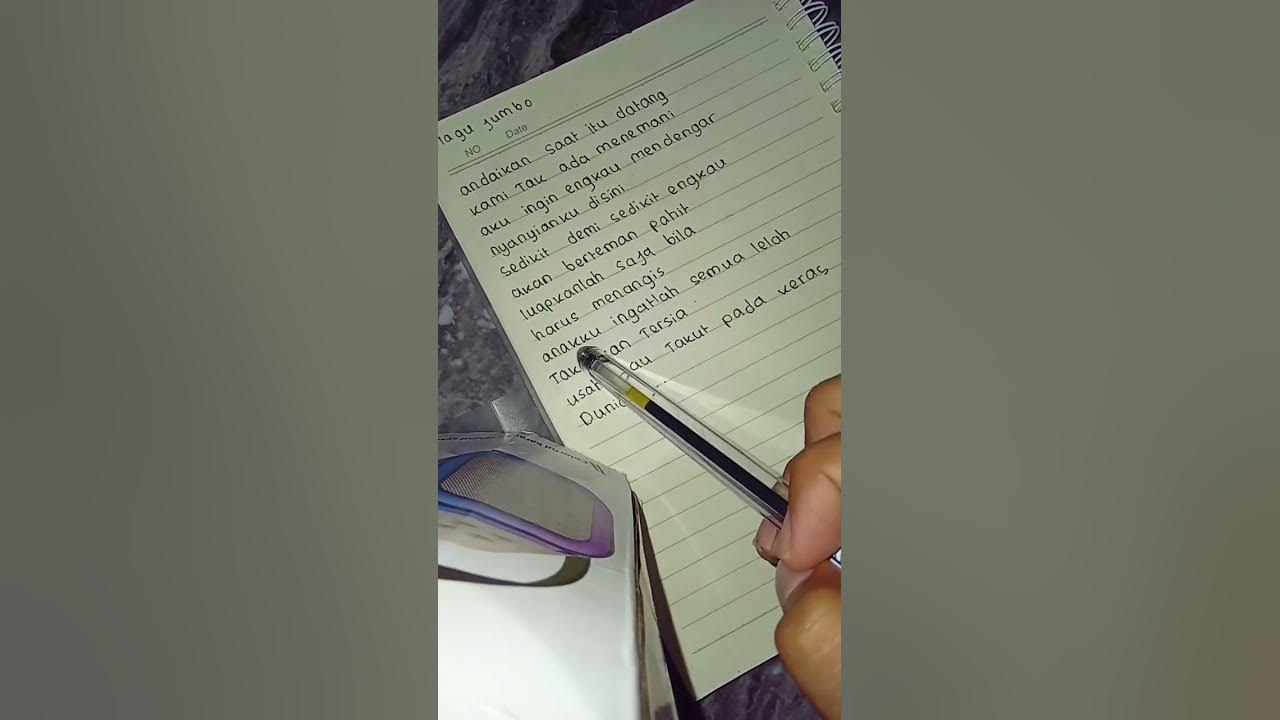 lagu jumbo
NO Date
andaikan saat itu datang
kami Tak ada menemani
aku ingin engkau mendengar
nyanyianku disini
sedikit demi sedikit engkau
akan berteman pahit
luapkanlah saja bila
harus menangis
anakku ingatlah semua lelah
Tak an Tersia
usah au Takut pada keras
Dunia